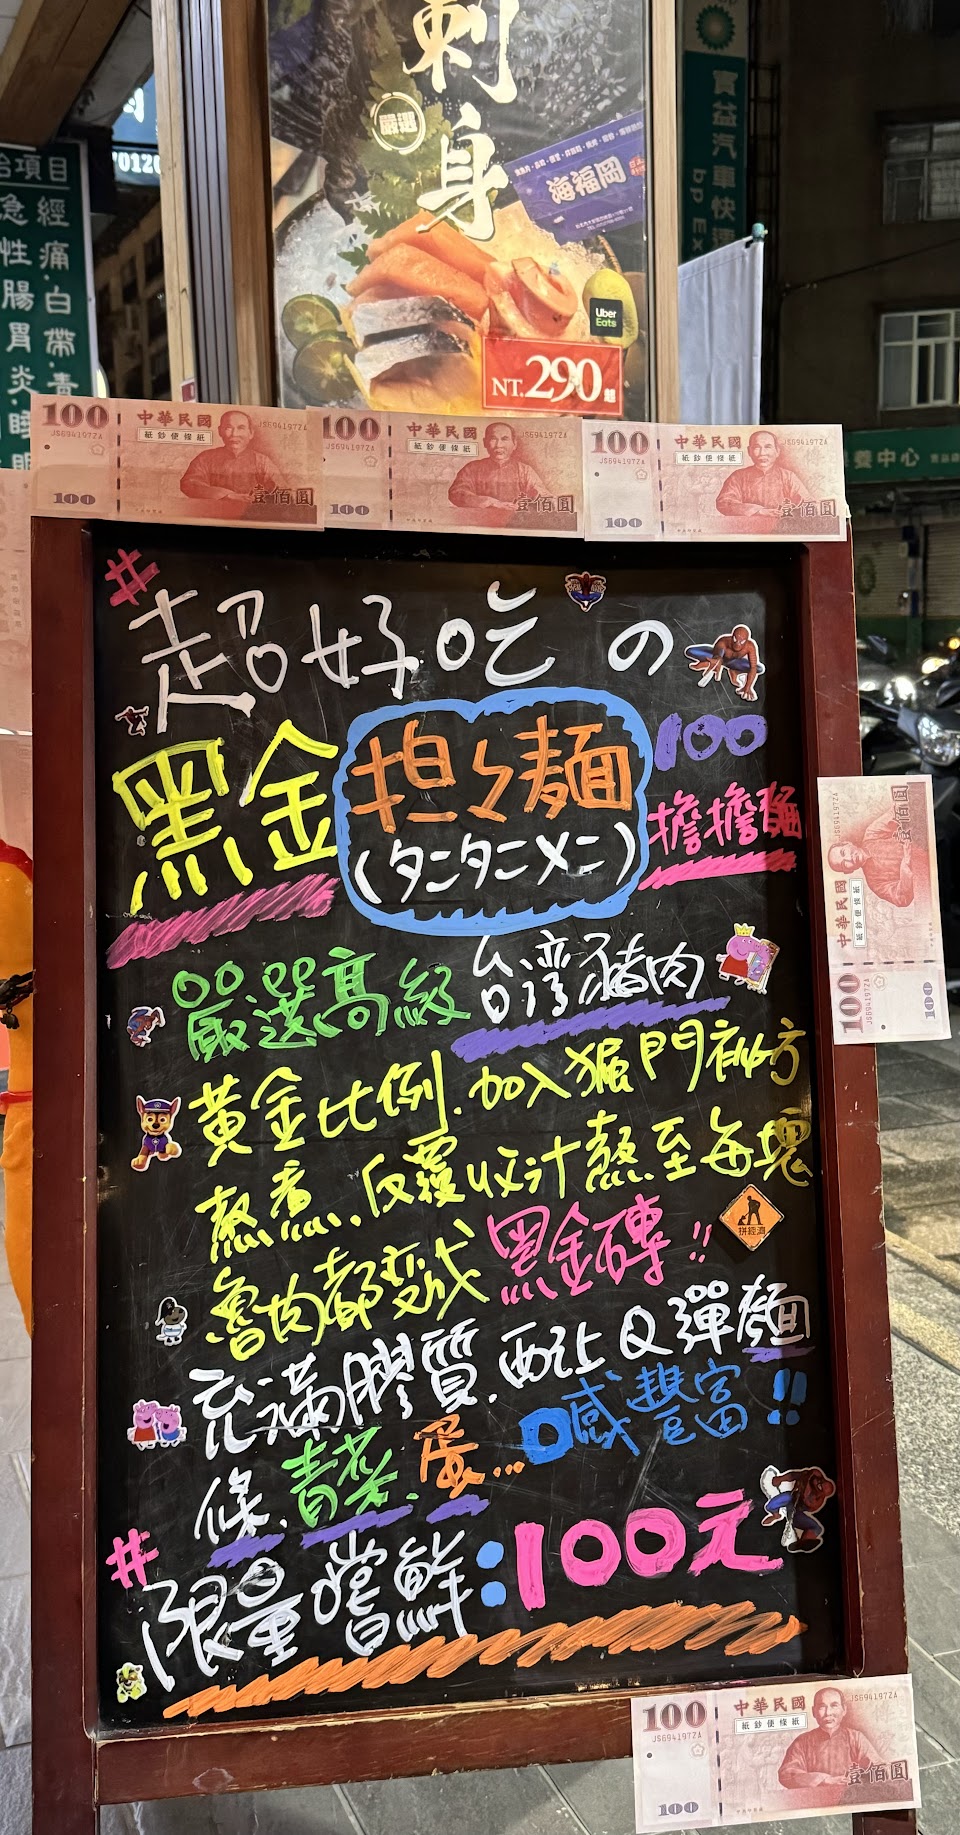 刺身
嚴選
海福岡
Uber
Eats
NT.290起
寶益汽車快速
bp
治項目
經痛・白帶・
急性腸胃炎・
養中心
100
JS694197ZA
中華民國
紙鈔便條紙
壹佰圓
100
100
JS694197ZA
中華民國
紙鈔便條紙
壹佰圓
100
100
JS694197ZA
中華民國
紙鈔便條紙
JS694197ZA
壹佰圓
100
#超好吃の
黑金担々麵100
(タンタンメン)擔擔麵
嚴選高級台灣豬肉
黃金比例.加入獨門祕方
熬煮.反覆收汁熬至每塊
魯肉都變成黑金磚!!
拼經濟
充滿膠質.配上Q彈麵
條.青菜.蛋...口感豐富!!
#限量嚐鮮:100元
100
JS694197ZA
中華民國
紙鈔便條紙
JS694197ZA
壹佰圓
100
100
JS694197ZA
中華民國
紙鈔便條紙
JS694197ZA
壹佰圓
100